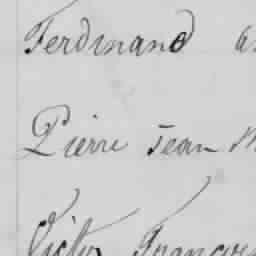 Ferdinand
Pierre Jean
Victor François